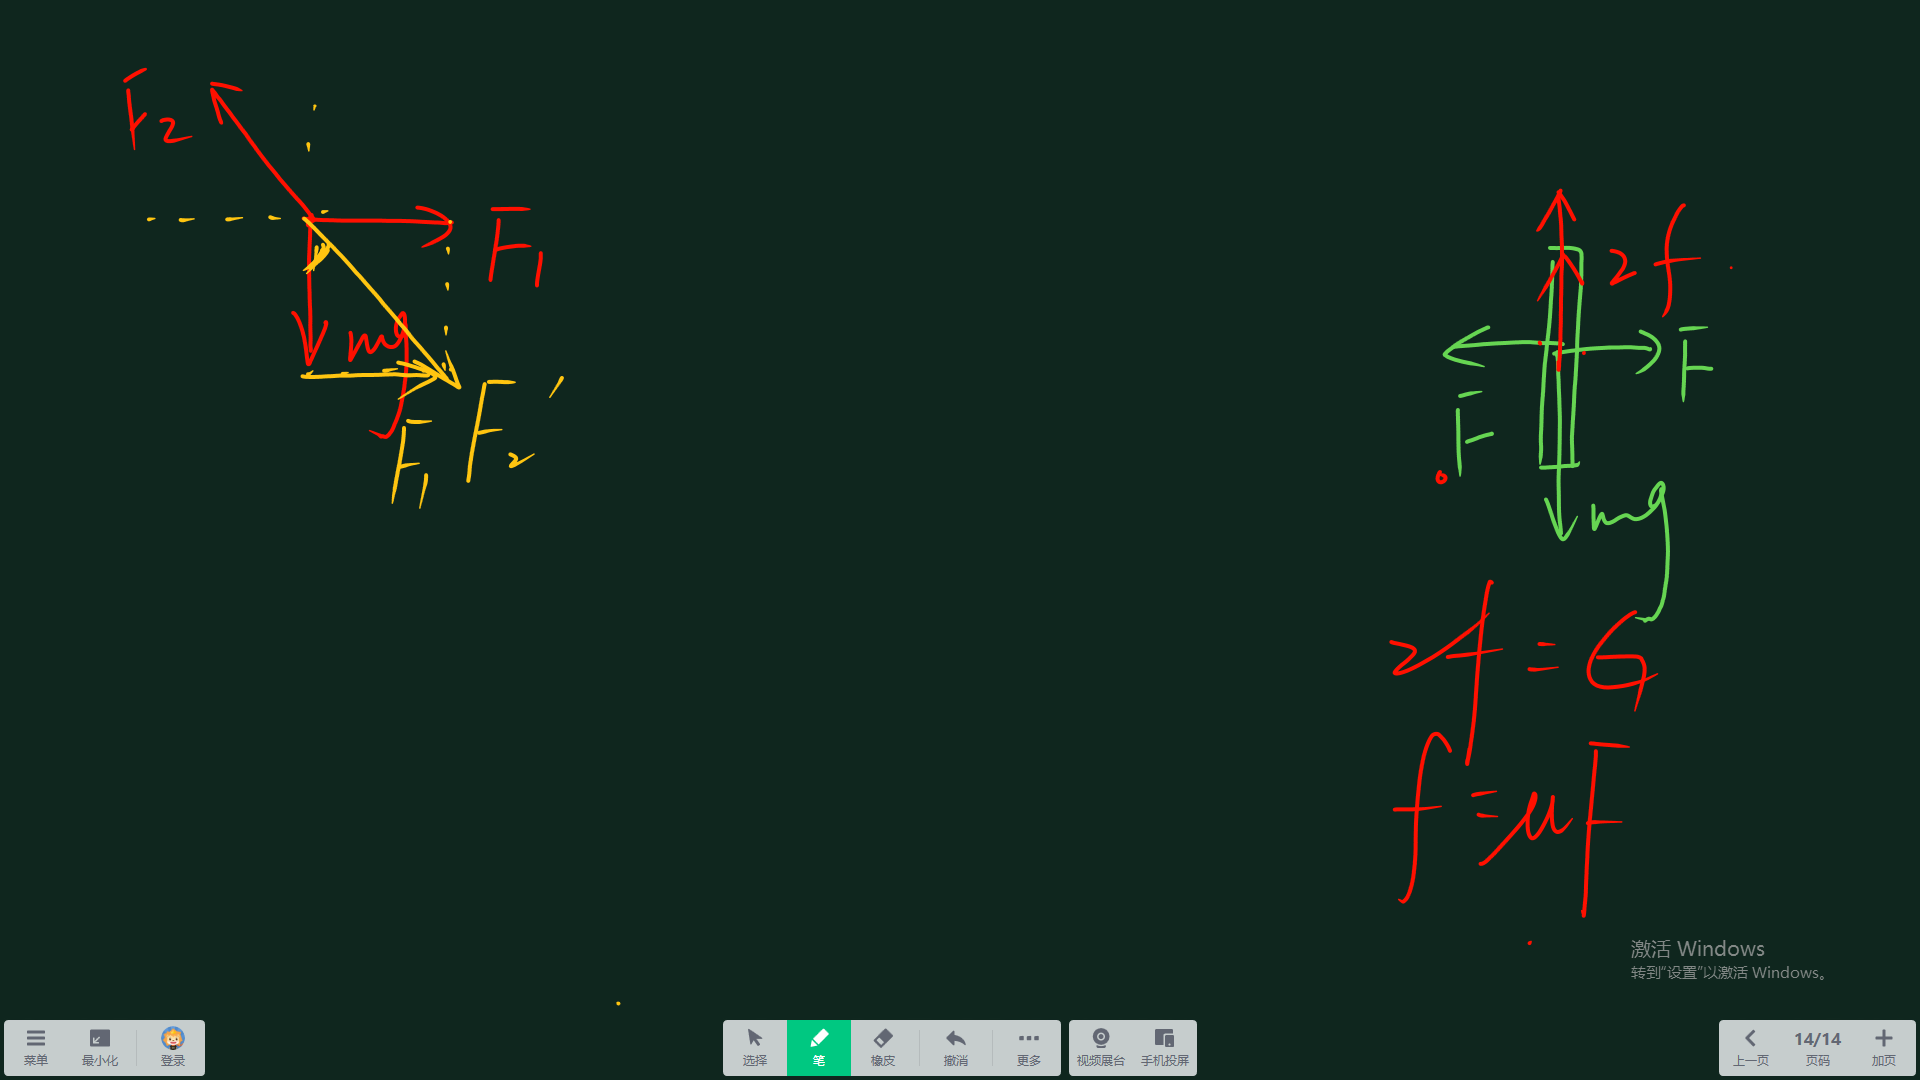 F₂
F₁
mg
F₂′
F₁
2f
F
F
mg
2f = G
f = μF
激活 Windows
转到“设置”以激活 Windows。
菜单
最小化
登录
选择
笔
橡皮
撤消
更多
视频展台
手机投屏
上一页
14/14
页码
加页